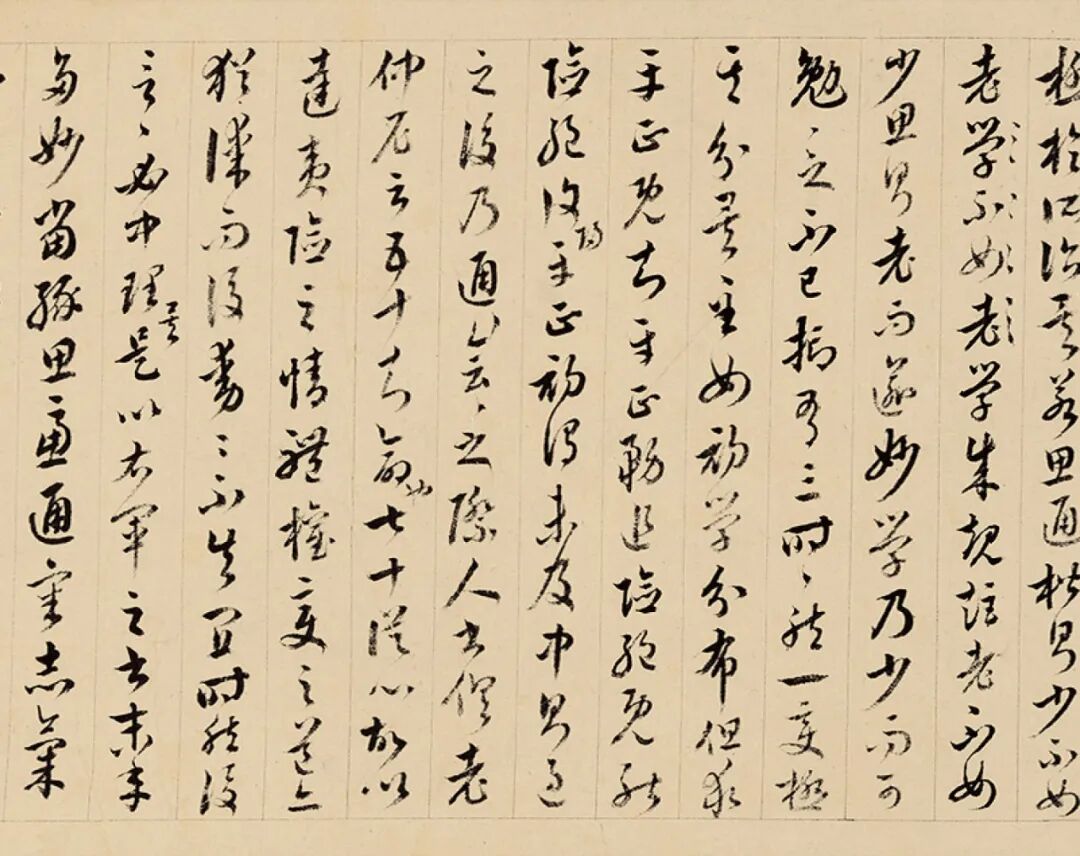 極於所詣矣若思通楷則少不如
老學不如老學成規矩老不如
少思則老而逾妙學乃少而可
勉之不已抑有三時〻然一變極
其分矣至如初學分布但求
平正既知平正務追險絕既能
險絕復歸平正初謂未及中則過
之後乃通會〻之際人書俱老
仲尼云五十知命也七十從心故以
達夷險之情體權變之道亦
猶謀而後動〻不失宜時然後
言〻必中理矣是以右軍之書末年
多妙當緣思慮通審志氣